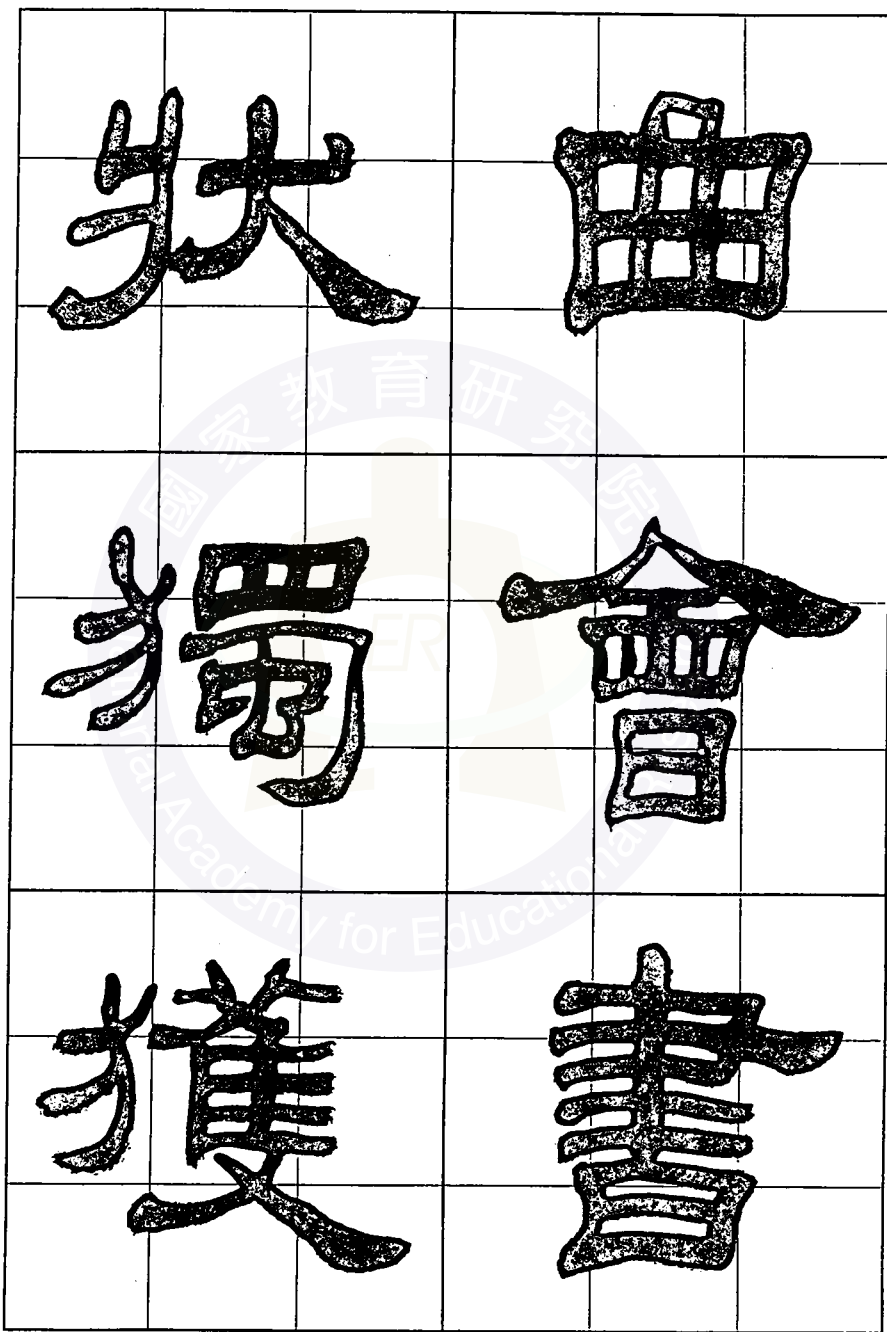 曲
會
書
狀
獨
獲
國家教育研究院
Academy for Educational